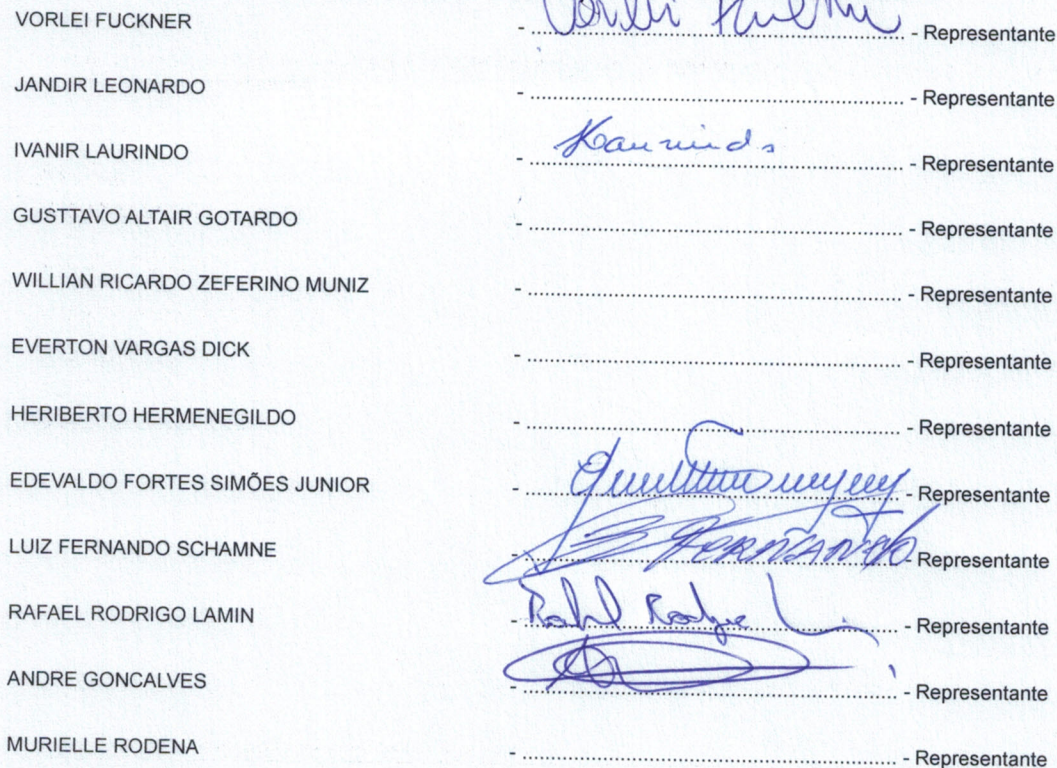 VORLEI FUCKNER - Vorlei Fuckner - Representante
JANDIR LEONARDO - ........ - Representante
IVANIR LAURINDO - ........ - Representante
GUSTTAVO ALTAIR GOTARDO - ........ - Representante
WILLIAN RICARDO ZEFERINO MUNIZ - ........ - Representante
EVERTON VARGAS DICK - ........ - Representante
HERIBERTO HERMENEGILDO - ........ - Representante
EDEVALDO FORTES SIMÕES JUNIOR - ........ - Representante
LUIZ FERNANDO SCHAMNE - FERNANDO - Representante
RAFAEL RODRIGO LAMIN - ........ - Representante
ANDRE GONCALVES - ........ - Representante
MURIELLE RODENA - ........ - Representante